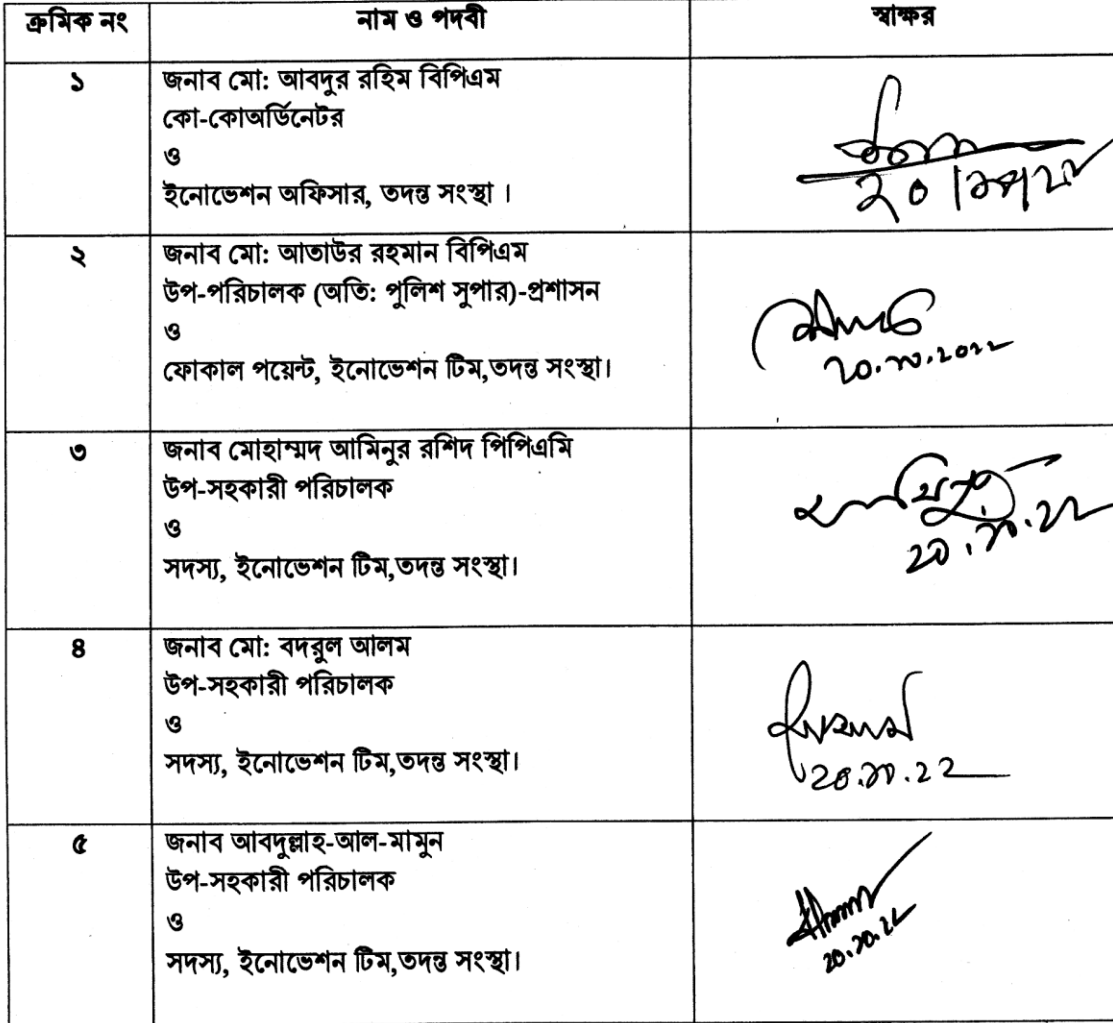 ক্রমিক নং নাম ও পদবী স্বাক্ষর
১ জনাব মো: আবদুর রহিম বিপিএম
কো-কোঅর্ডিনেটর
ও
ইনোভেশন অফিসার, তদন্ত সংস্থা ।
২ জনাব মো: আতাউর রহমান বিপিএম
উপ-পরিচালক (অতি: পুলিশ সুপার)-প্রশাসন
ও
ফোকাল পয়েন্ট, ইনোভেশন টিম,তদন্ত সংস্থা।
৩ জনাব মোহাম্মদ আমিনুর রশিদ পিপিএমি
উপ-সহকারী পরিচালক
ও
সদস্য, ইনোভেশন টিম,তদন্ত সংস্থা।
৪ জনাব মো: বদরুল আলম
উপ-সহকারী পরিচালক
ও
সদস্য, ইনোভেশন টিম,তদন্ত সংস্থা।
৫ জনাব আবদুল্লাহ-আল-মামুন
উপ-সহকারী পরিচালক
ও
সদস্য, ইনোভেশন টিম,তদন্ত সংস্থা।